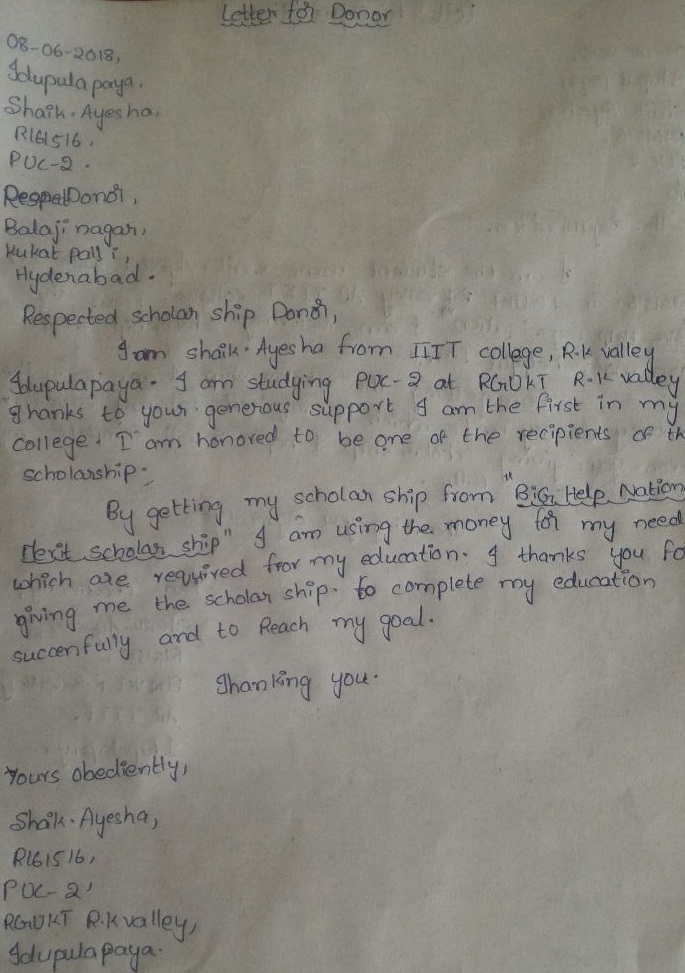 Letter for Donor
08-06-2018,
Idupulapaya.
Shaik. Ayesha,
R161516,
PUC-2.
Donor,
Balaji nagar,
Kukat palli,
Hyderabad.
Respected scholar ship Donor,
I am shaik. Ayesha from IIIT college, R.k valley
Idupulapaya. I am studying PUC-2 at RGUKT R.k valley
Thanks to your generous support I am the first in my
college. I am honored to be one of the recipients of th
scholarship.
By getting my scholar ship from "BiG Help Nation
Merit scholar ship" I am using the money for my need
which are required fror my education. I thanks you fo
giving me the scholar ship. to complete my education
succenfully and to Reach my goal.
Thanking you.
Yours obediently,
Shaik. Ayesha,
R161516,
PUC-2,
RGUKT R.k valley,
Idupulapaya.